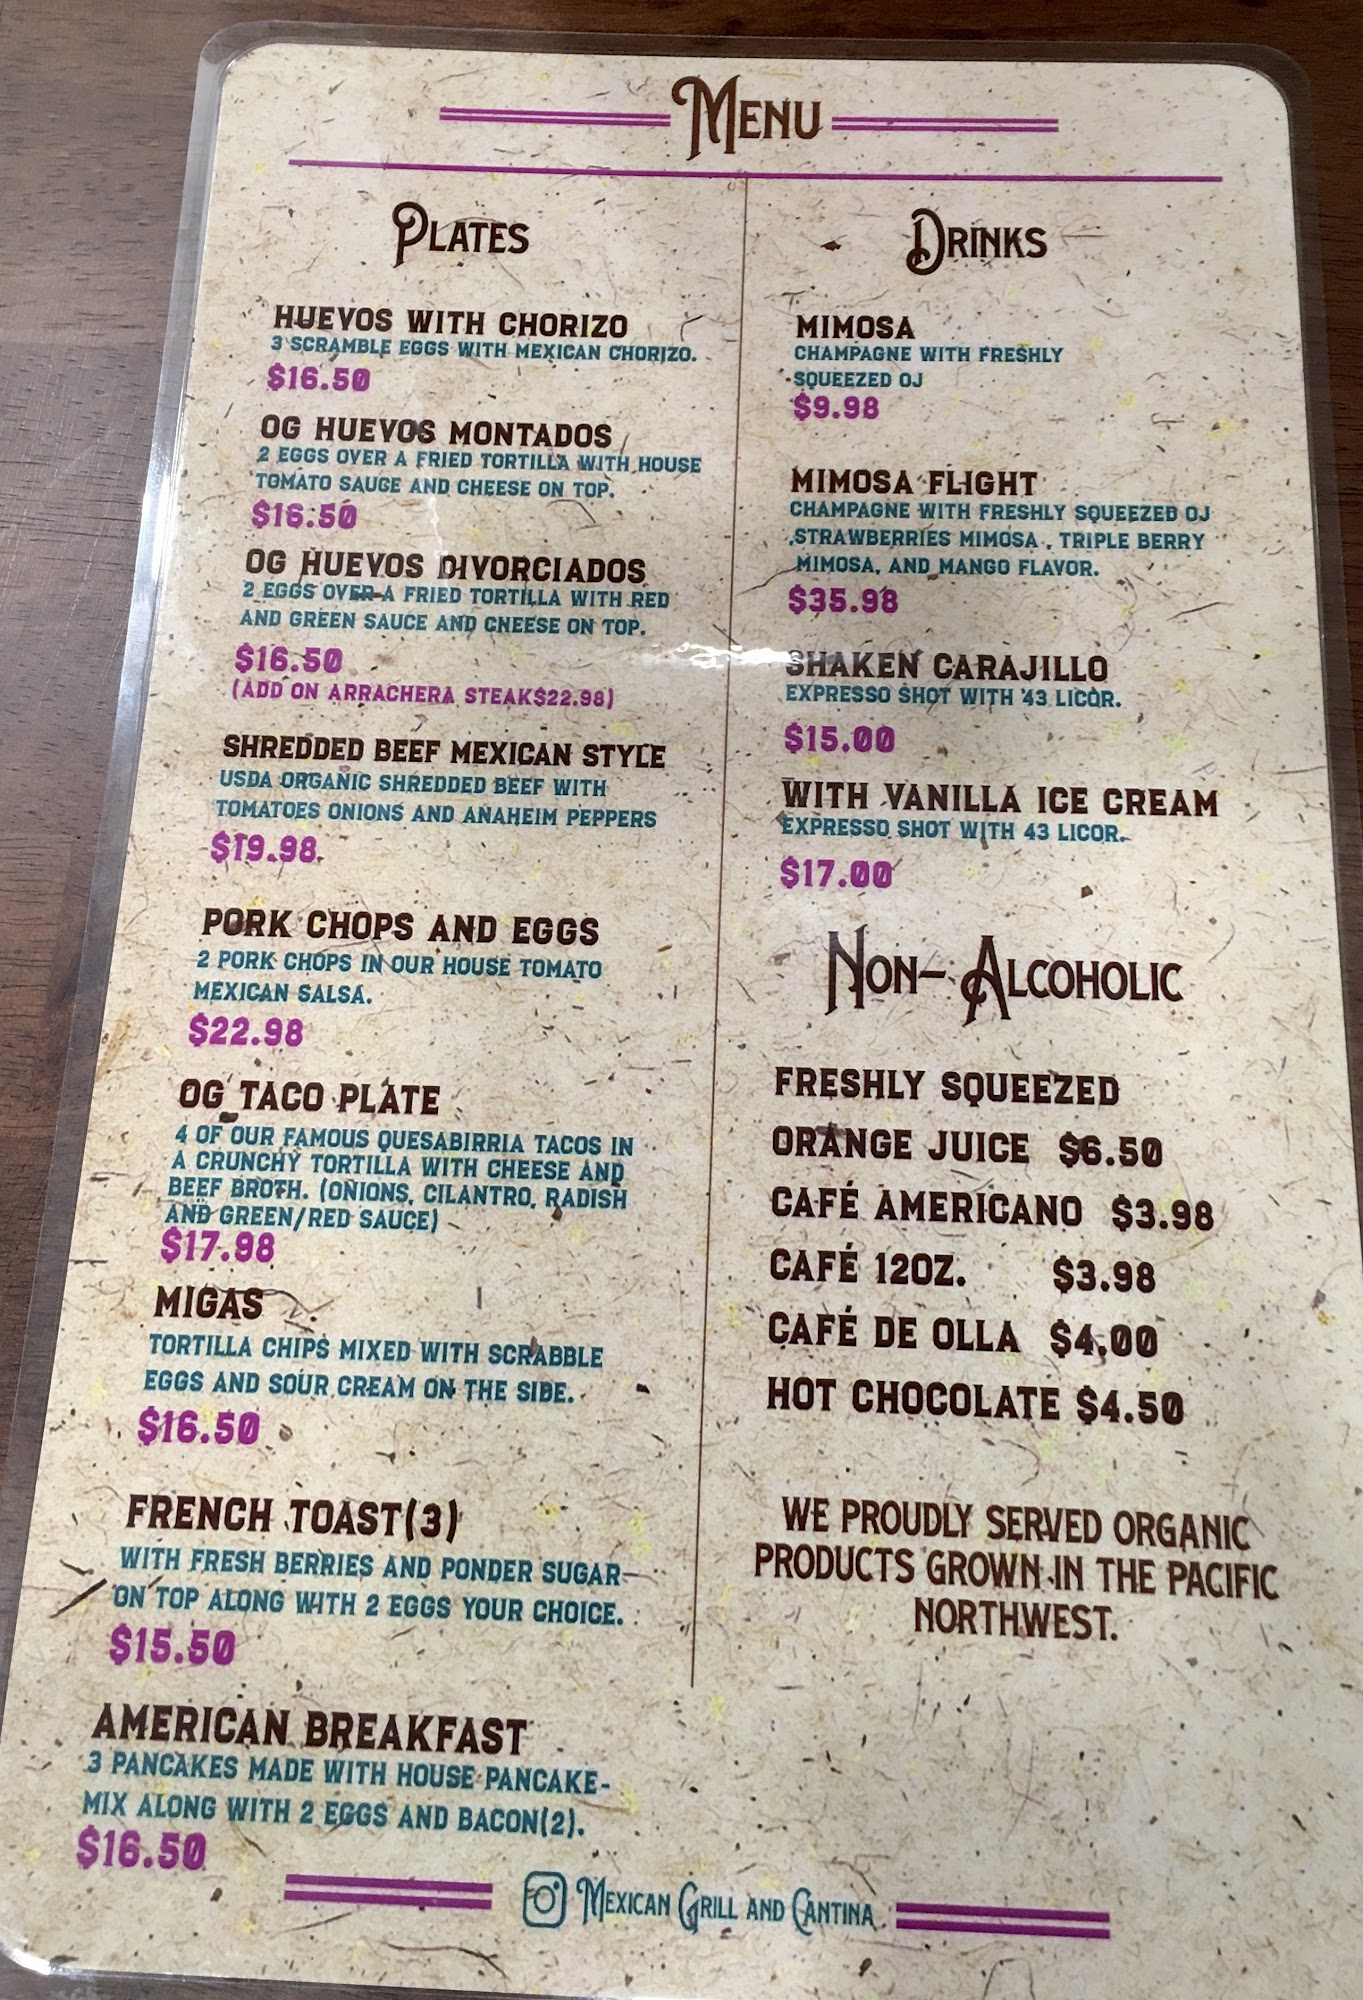 MENU
PLATES
HUEVOS WITH CHORIZO
3 SCRAMBLE EGGS WITH MEXICAN CHORIZO.
$16.50
OG HUEVOS MONTADOS
2 EGGS OVER A FRIED TORTILLA WITH HOUSE
TOMATO SAUCE AND CHEESE ON TOP.
$16.50
OG HUEVOS DIVORCIADOS
2 EGGS OVER A FRIED TORTILLA WITH RED
AND GREEN SAUCE AND CHEESE ON TOP.
$16.50
(ADD ON ARRACHERA STEAK$22.98)
SHREDDED BEEF MEXICAN STYLE
USDA ORGANIC SHREDDED BEEF WITH
TOMATOES ONIONS AND ANAHEIM PEPPERS
$19.98
PORK CHOPS AND EGGS
2 PORK CHOPS IN OUR HOUSE TOMATO
MEXICAN SALSA.
$22.98
OG TACO PLATE
4 OF OUR FAMOUS QUESABIRRIA TACOS IN
A CRUNCHY TORTILLA WITH CHEESE AND
BEEF BROTH. (ONIONS, CILANTRO, RADISH
AND GREEN/RED SAUCE)
$17.98
MIGAS
TORTILLA CHIPS MIXED WITH SCRABBLE
EGGS AND SOUR CREAM ON THE SIDE.
$16.50
FRENCH TOAST(3)
WITH FRESH BERRIES AND PONDER SUGAR
ON TOP ALONG WITH 2 EGGS YOUR CHOICE.
$15.50
AMERICAN BREAKFAST
3 PANCAKES MADE WITH HOUSE PANCAKE-
MIX ALONG WITH 2 EGGS AND BACON(2).
$16.50
DRINKS
MIMOSA
CHAMPAGNE WITH FRESHLY
SQUEEZED OJ
$9.98
MIMOSA FLIGHT
CHAMPAGNE WITH FRESHLY SQUEEZED OJ
,STRAWBERRIES MIMOSA , TRIPLE BERRY
MIMOSA, AND MANGO FLAVOR.
$35.98
SHAKEN CARAJILLO
EXPRESSO SHOT WITH 43 LICOR.
$15.00
WITH VANILLA ICE CREAM
EXPRESSO SHOT WITH 43 LICOR.
$17.00
NON- ALCOHOLIC
FRESHLY SQUEEZED
ORANGE JUICE $6.50
CAFÉ AMERICANO $3.98
CAFÉ 12OZ. $3.98
CAFÉ DE OLLA $4.00
HOT CHOCOLATE $4.50
WE PROUDLY SERVED ORGANIC
PRODUCTS GROWN IN THE PACIFIC
NORTHWEST.
MEXICAN GRILL AND CANTINA